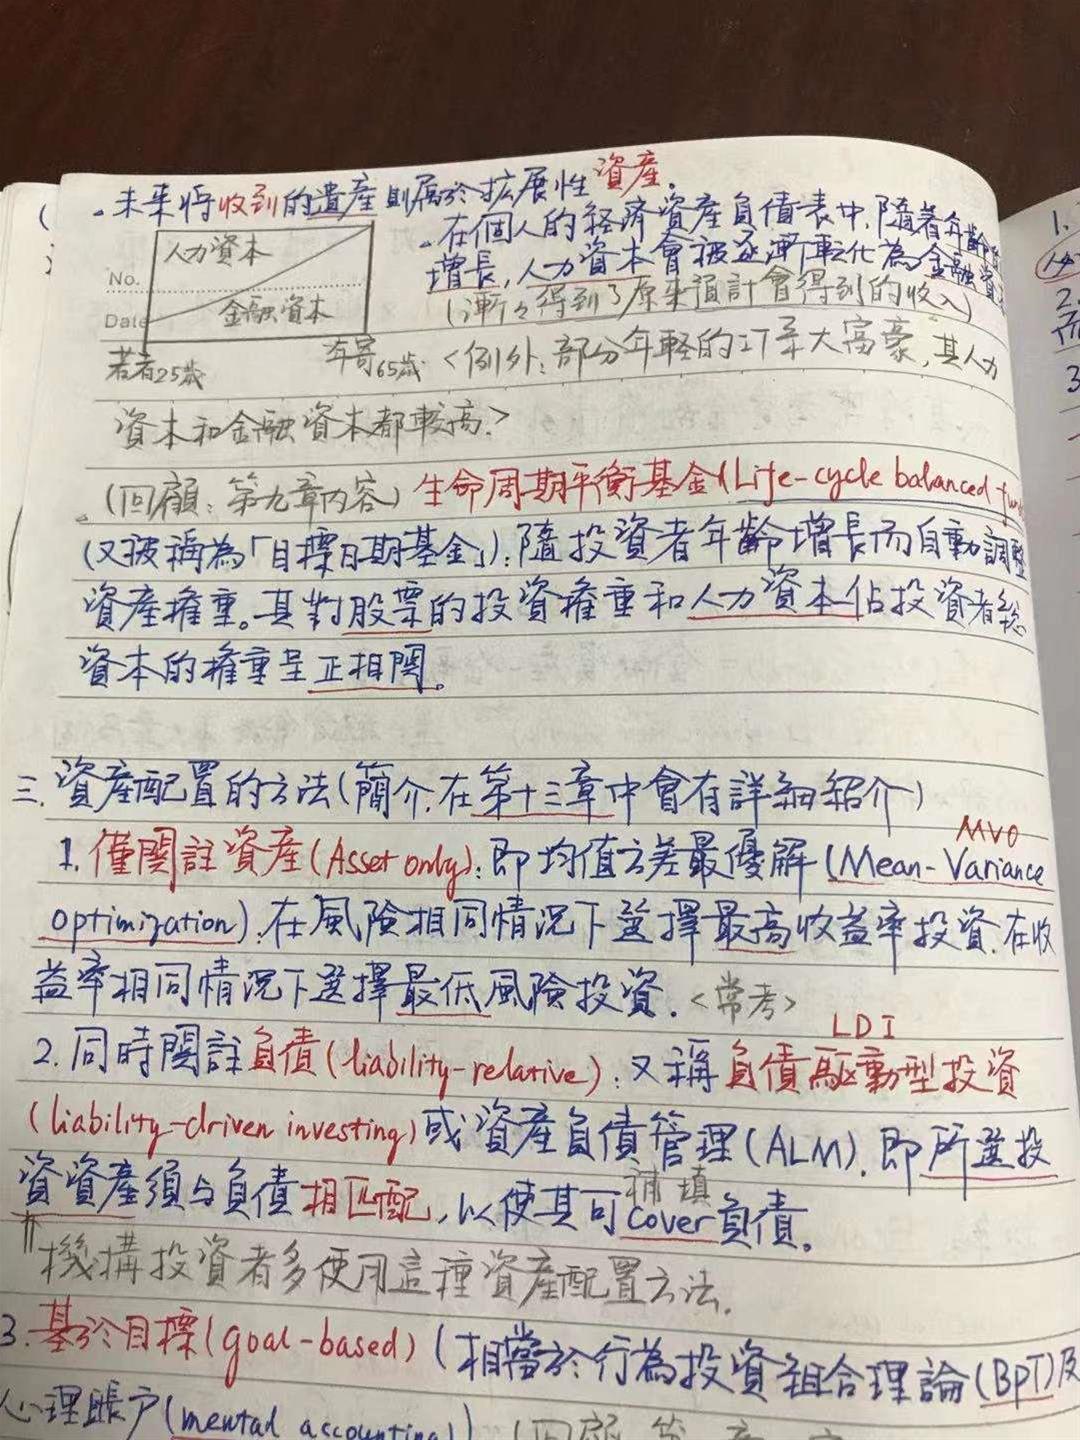 。未来将收到的遺産則属於拡展性資産。
。在個人的経済資産負債表中,隨著年齡
增長,人力資本會被逐漸転化為金融資
(漸々得到了原来預計會得到的收入)
人力資本
No.
金融資本
Date
若者25歲
年寄65歲
<例外:部分年軽的IT系大富豪,其人力
資本和金融資本都較高.>
。(回顧:第九章内容)生命周期平衡基金(Life-cycle balanced fun
(又被稱為「目標日期基金」):隨投資者年齡增長而自動調整
資産權重。其對股票的投資權重和人力資本佔投資者総
資本的權重呈正相関。
三.資産配置的方法(簡介.在第十三章中會有詳細紹介)
MVO
1.僅関註資産(Asset only):即均值方差最優解(Mean-Variance
optimization).在風險相同情況下選擇最高收益率投資.在收
益率相同情況下選擇最低風險投資.<常考>
LDI
2.同時関註負債(liability-relative):又稱負債駆動型投資
(liability-driven investing)或資産負債管理(ALM).即所選投
資資産須与負債相匹配,以使其可cover負債。
補填
機構投資者多使用這種資産配置方法.
3.基於目標(goal-based)(相當於行為投資組合理論(BPT)及
心理賬戶(mental accounting))(回顧第
1.
2.
而
3